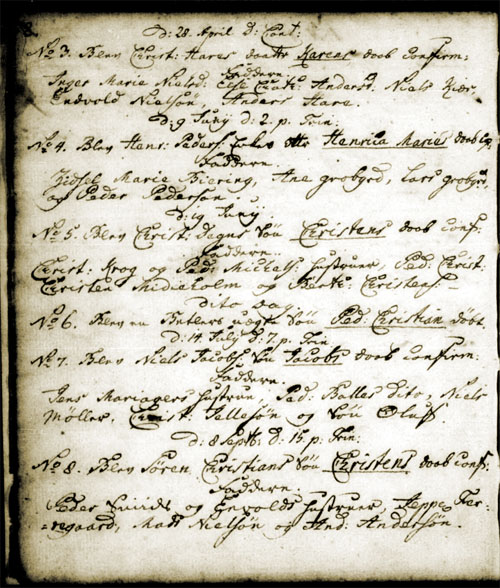 D: 28. April D: Cant:
No 3. Blev Christ: Hares daatr Karens doob Confirm:
Faddern.
Inger Marie Nielsd: Else Christ: Andersd: Niels Kiær
Endvold Nielsøn, Anders Hare.
D: 9 Juny D: 2. p. Trin:
No 4. Blev Henr: Peders: datr Henrica Maries doob
Faddern.
Zidsel Marie Biering, Ane grobyrd, Lars grobyrd
og Peder Pederson.
D: 19 Juny.
No 5. Blev Christ: Degns Søn Christens doob Conf:
Faddern.
Christ: Krog og Ped: Mickels: Hustruer, Ped: Christ:
Christen Midieholm og Berte Christens:
Dito Dag.
No 6. Blev en Betlers uægte Søn Ped: Christian døbt.
D: 14 July D: 7. p. Trin
No 7. Blev Niels Jacobs: Søn Jacobs doob Confirm:
Faddern.
Jens Mariagers Hustrue, Ped: Balles Dito, Niels
Møller, Christ: Jellesøn og Søn Oluf
D: 8 Septb: D: 15. p: Trin:
No 8. Blev Søren Christians Søn Christens doob Conf:
Faddern.
Peder Smids og Envolds Hustruer, Jeppe Fer-
regaard, Mads Nielsøn og And: Andersøn.